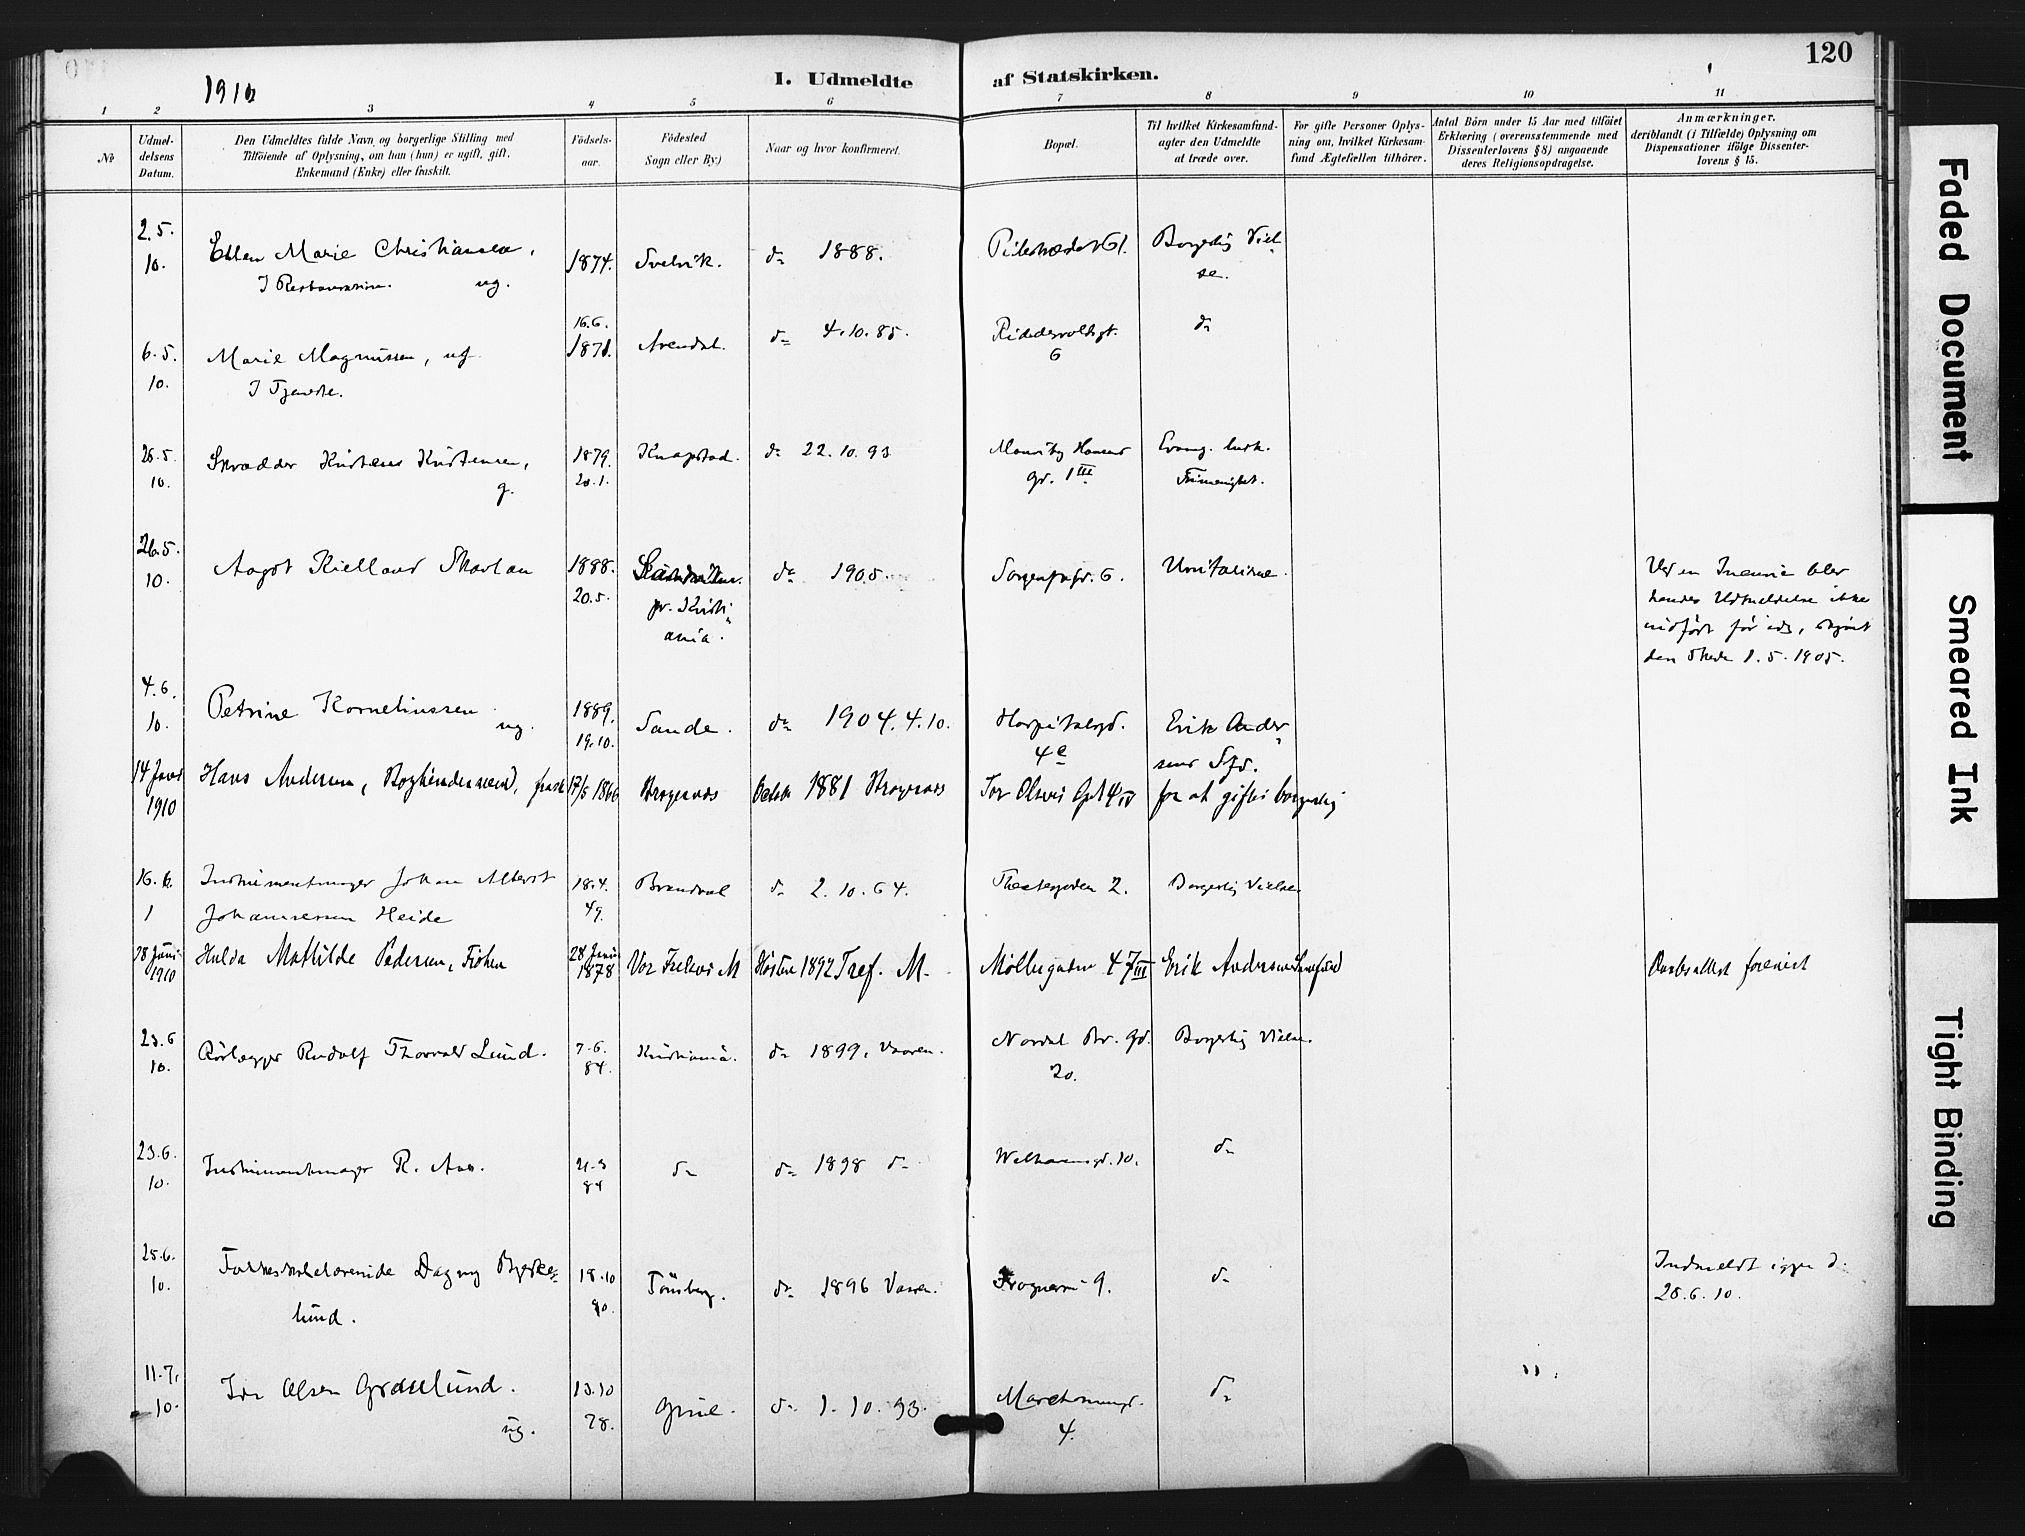 120
1910
I. Udmeldte af Statskirken.
1 2 3 4 5 6 7 8 9 10 11
No
Udmeldelsens Datum.
Den Udmeldtes fulde Navn og borgerlige Stilling med
Tilföiende af Oplysning, om han (hun) er ugift, gift,
Enkemand (Enke) eller fraskilt.
Födsels-
aar.
Födested
Sogn eller By)
Naar og hvor konfirmeret.
Bopæl.
Til hvilket Kirkesamfund-
agter den Udmeldte
at træde over.
For gifte Personer Oplys-
ning om, hvilket Kirkesam-
fund Ægtefællen tilhörer.
Antal Börn under 15 Aar med tilföiet
Erklæring (overensstemmende med
Dissenterlovens § 8) angaaende
deres Religionsopdragelse.
Anmærkninger,
deriblandt (i Tilfælde) Oplysning om
Dispensationer ifölge Dissenter-
lovens § 15.
2.5.
10.
Ellen Marie Christiansen,
I Restauration. ug.
1874.
Svelvik.
do 1888.
Pilestrædet 61.
Borgerlig Viel-
se.
6.5.
10.
Marie Magnussen, ug.
I Tjeneste.
16.6.
1871.
Arendal.
do 4.10.85.
Riddervoldsgt.
6
do
26.5.
10.
Skrædder Kristens Kristensen,
g.
1879.
20.1.
Knapstad.
do 22.10.93
gr. 1 III
Evang. luth.
Frimenighet.
26.5.
10.
Aagot Kielland Skavlan
1888.
20.5.
pr. Kristi-
ania.
do 1905.
Sorgenfrigd. 6.
Unitarierne.
Ved en Incurie blev
hendes Udmeldelse ikke
indført før idag, skjønt
den skede 1.5.1905.
4.6.
10.
Petrine Korneliussen
ug.
1889.
19.10.
Sande.
do 1904.4.10.
Hospitalsgd.
4 e
Erik Ander-
sens Sfd.
14 Juni
1910
Hans Andersen, Bogbindersvend, frask
17/5 1866
Bragernes
Octobr 1881 Bragernes
Tor Olsens Gd 4 IV
for at giftes borgerlig
16.6.
1
Instrumentmager Johan Albert
Johannessen Heide
18.4.
49.
Brandval
do 2.10.64.
Theatergaden 2.
Borgerlig Vielse
18 Juni
1910
Hulda Mathilde Pedersen, Frøken
28 Juni
1878
Vor Frelsers M
Høsten 1892 Tref. M.
Møllergaden 47 III
Erik Andersens Samfund
23.6
10.
Rörlægger Rudolf Thorvald Lund.
7.6.
84.
Kristiania.
do 1899. Vaaren.
Nordal Br. Gd.
20.
Borgerlig Vielse.
23.6.
10.
Instrumentmager R. Aas.
21.3
84
do
do 1898 do
Welhavensgd. 10.
do
25.6.
10.
Folkeskolelærerinde Dagny Bjerke-
lund.
18.10
Tönsberg.
do 1896 Vaaren.
Frognerv. 9.
do
Indmeldt igjen d.
28.6.10.
11.7.
10.
Ida Olsen Graselund.
ug.
13.10
78.
Grue.
do 1.10.93.
4.
do
Faded Document
Smeared Ink
Tight Binding